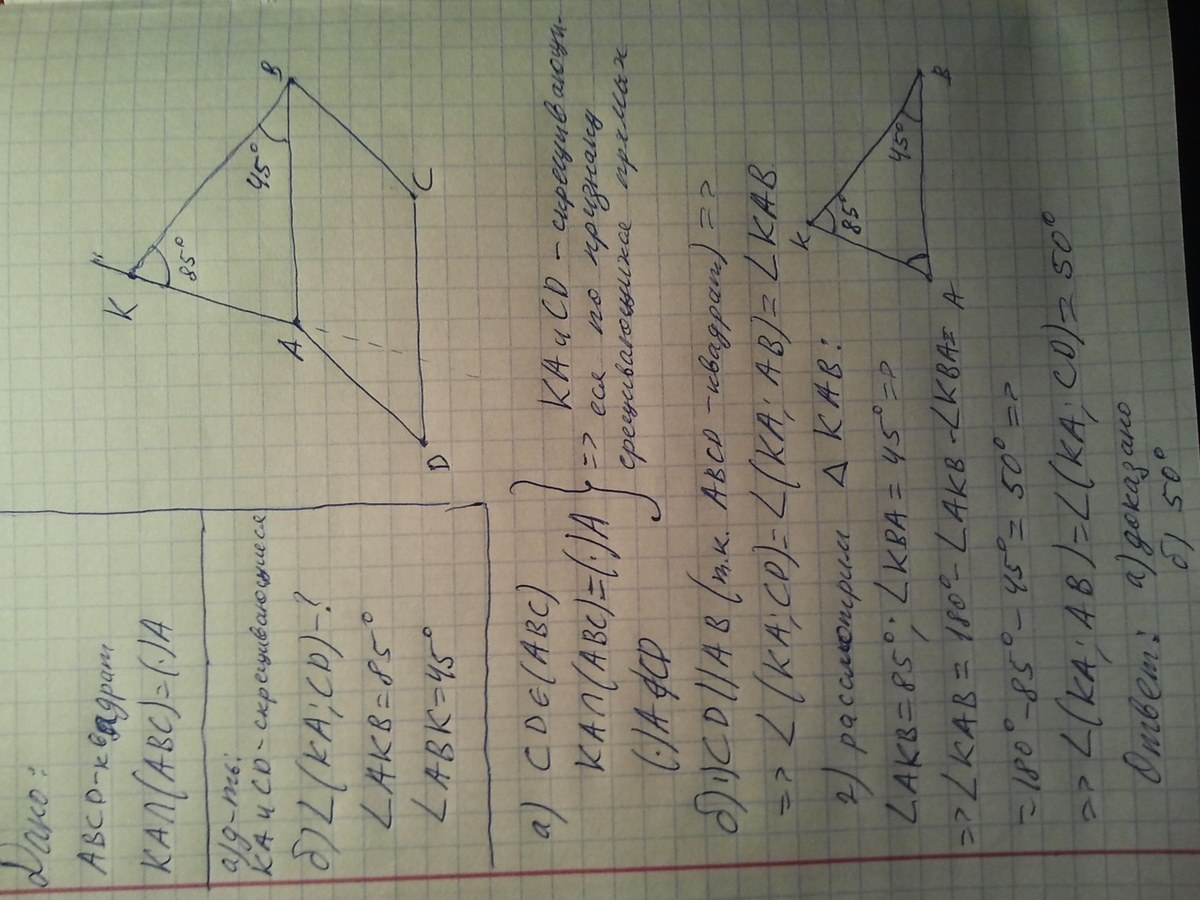 Дано:
ABCD-квадрат
KA∩(ABC)=(·)A
а) д-ть:
KA и CD-скрещивающиеся
б) ∠(KA; CD)-?
∠AKB=85°
∠ABK=45°
K
85°
45°
B
A
D
C
а) CD∈(ABC)
KA∩(ABC)=(·)A
(·)A∉CD
=> KA и CD-скрещивающи-
еся по признаку
скрещивающихся прямых
б) 1) CD||AB (т.к. ABCD-квадрат) =>
=> ∠(KA; CD)=∠(KA; AB)=∠KAB
2) рассмотрим △KAB:
∠AKB=85°; ∠KBA=45° =>
=> ∠KAB=180°-∠AKB-∠KBA=
=180°-85°-45°=50° =>
=> ∠(KA; AB)=∠(KA; CD)=50°
K
85°
45°
B
A
Ответ: а) доказано
б) 50°